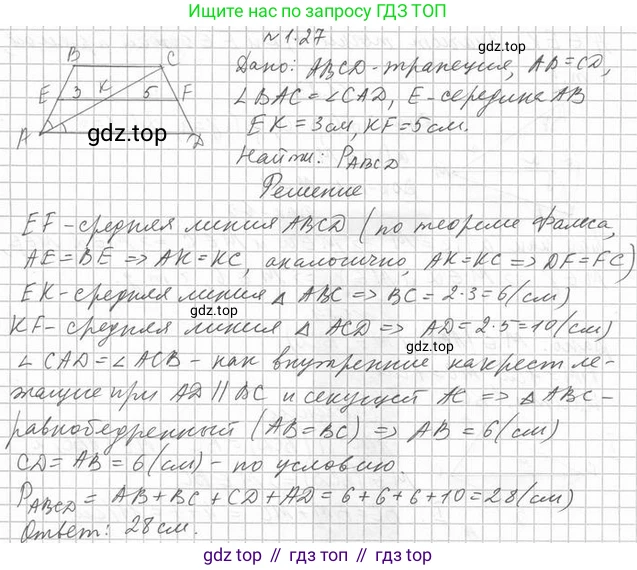 Еще больше по запросу ГДЗ ТОП
№1.27
B C
E 3 K 5 F
A D
gdz.top
gdz.top
Дано: ABCD-трапеция, AB=CD,
∠BAC=∠CAD, E-середина AB
EK=3см, KF=5см.
Найти: P_ABCD
Решение
EF-средняя линия ABCD (по теореме Фалеса,
AE=BE => AK=KC, аналогично, AK=KC => DF=FC)
EK-средняя линия △ ABC => BC=2·3=6(см)
gdz.top
KF-средняя линия △ ACD => AD=2·5=10(см)
gdz.top
∠CAD=∠ACB - как внутренние накрест ле-
жащие при AD || BC и секущей AC => △ABC-
равнобедренный (AB=BC) => AB=6(см)
CD=AB=6(см)-по условию.
P_ABCD = AB+BC+CD+AD=6+6+6+10=28(см)
gdz.top
Ответ: 28см.
gdz.top // гдз.топ // gdz.top // гдз.топ